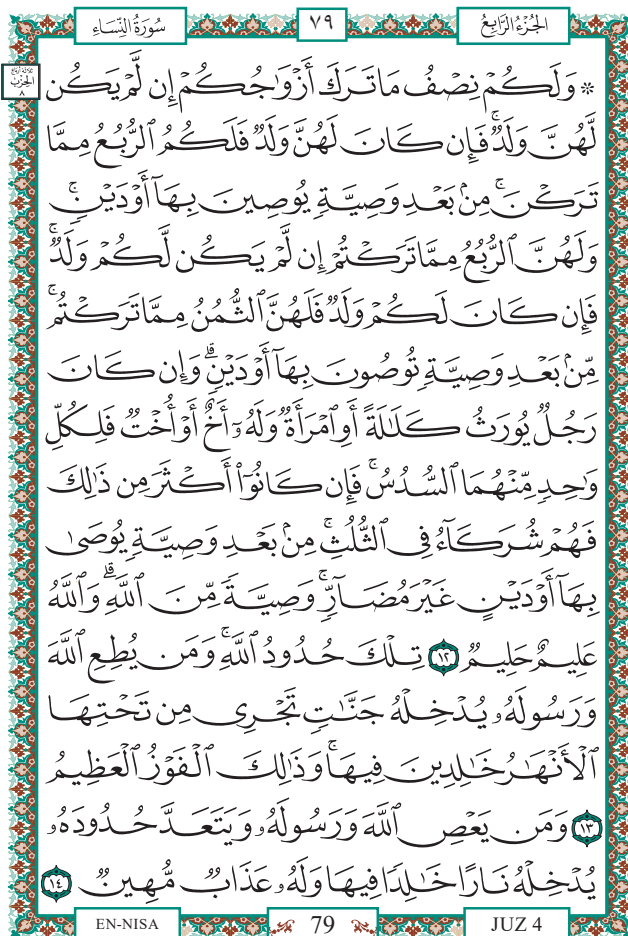 الجُزْءُ الرَّابِعُ
٧٩
سُورَةُ النِّسَاءِ
۞ وَلَكُمْ نِصْفُ مَا تَرَكَ أَزْوَٰجُكُمْ إِن لَّمْ يَكُن
لَّهُنَّ وَلَدٌۭ ۚ فَإِن كَانَ لَهُنَّ وَلَدٌۭ فَلَكُمُ ٱلرُّبُعُ مِمَّا
تَرَكْنَ ۚ مِنۢ بَعْدِ وَصِيَّةٍۢ يُوصِينَ بِهَآ أَوْ دَيْنٍۢ ۚ
وَلَهُنَّ ٱلرُّبُعُ مِمَّا تَرَكْتُمْ إِن لَّمْ يَكُن لَّكُمْ وَلَدٌۭ ۚ
فَإِن كَانَ لَكُمْ وَلَدٌۭ فَلَهُنَّ ٱلثُّمُنُ مِمَّا تَرَكْتُم ۚ
مِّنۢ بَعْدِ وَصِيَّةٍۢ تُوصُونَ بِهَآ أَوْ دَيْنٍۢ ۗ وَإِن كَانَ
رَجُلٌۭ يُورَثُ كَلَٰلَةً أَوِ ٱمْرَأَةٌۭ وَلَهُۥٓ أَخٌ أَوْ أُخْتٌۭ فَلِكُلِّ
وَٰحِدٍۢ مِّنْهُمَا ٱلسُّدُسُ ۚ فَإِن كَانُوٓا۟ أَكْثَرَ مِن ذَٰلِكَ
فَهُمْ شُرَكَآءُ فِى ٱلثُّلُثِ ۚ مِنۢ بَعْدِ وَصِيَّةٍۢ يُوصَىٰ
بِهَآ أَوْ دَيْنٍ غَيْرَ مُضَآرٍّۢ ۚ وَصِيَّةًۭ مِّنَ ٱللَّهِ ۗ وَٱللَّهُ
عَلِيمٌ حَلِيمٌۭ ١٢ تِلْكَ حُدُودُ ٱللَّهِ ۚ وَمَن يُطِعِ ٱللَّهَ
وَرَسُولَهُۥ يُدْخِلْهُ جَنَّٰتٍۢ تَجْرِى مِن تَحْتِهَا
ٱلْأَنْهَٰرُ خَٰلِدِينَ فِيهَا ۚ وَذَٰلِكَ ٱلْفَوْزُ ٱلْعَظِيمُ
١٣ وَمَن يَعْصِ ٱللَّهَ وَرَسُولَهُۥ وَيَتَعَدَّ حُدُودَهُۥ
يُدْخِلْهُ نَارًا خَٰلِدًۭا فِيهَا وَلَهُۥ عَذَابٌۭ مُّهِينٌۭ ١٤
EN-NISA
79
JUZ 4